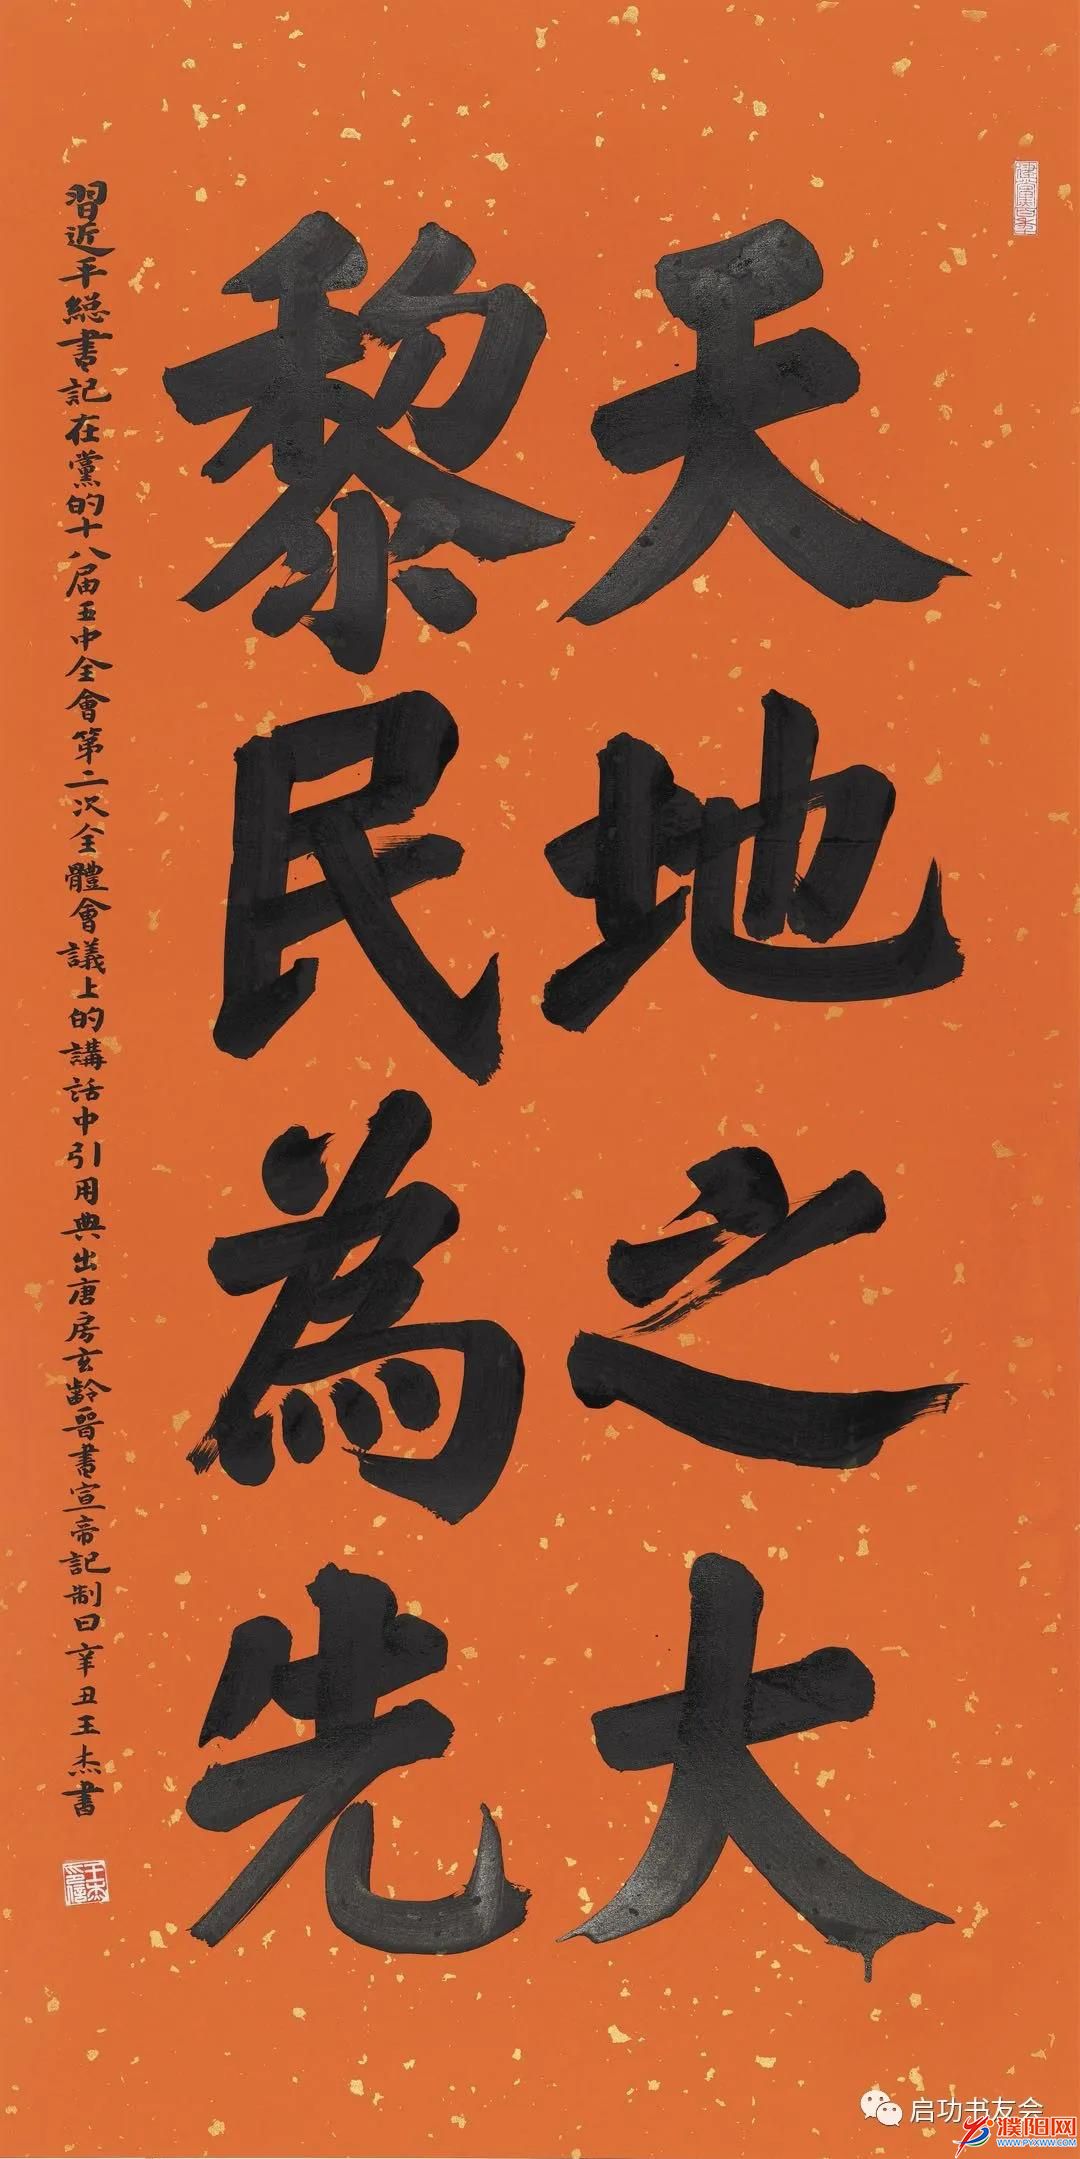 天地之大
黎民為先
習近平總書記在黨的十八届五中全會第二次全體會議上的講話中引用典出唐房玄齡晉書宣帝記制曰辛丑王杰書
建黨百年
王杰印信
启功书友会
濮阳网
WWW.PYXWW.COM